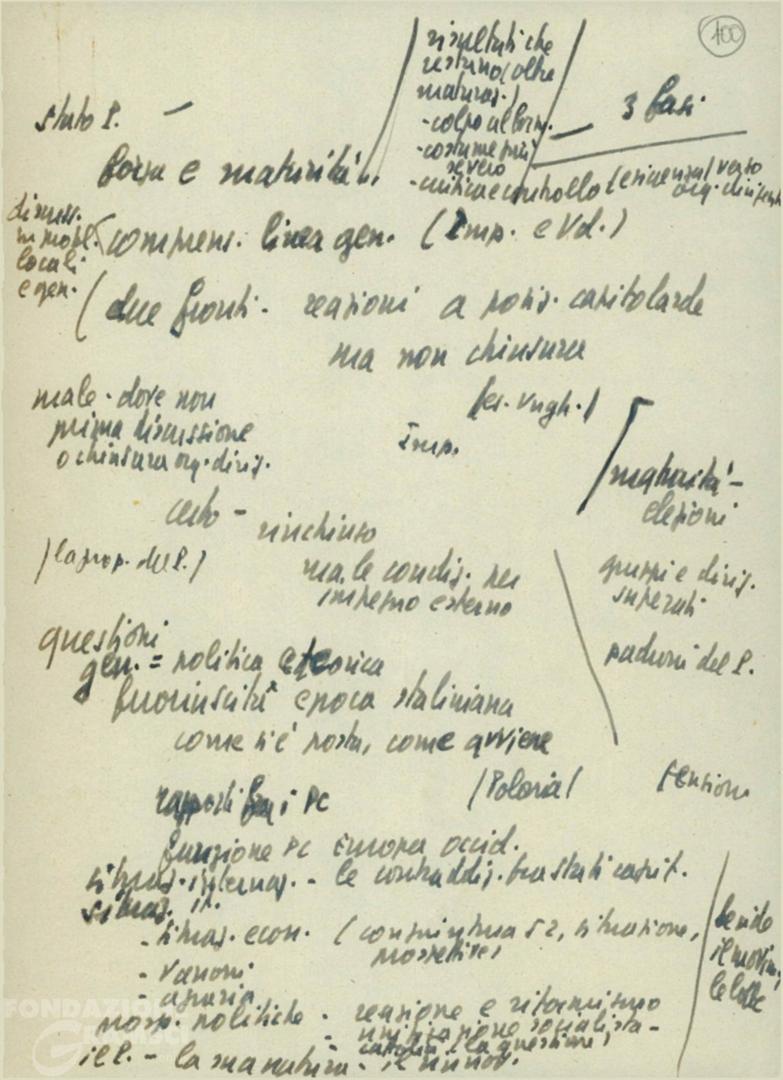 100
risultati che
restano (oltre
maturaz.)
- colpo al
- costume più
severo
- critica e controllo (esigenza) verso
org. dirigenti
3 fasi
stato P. -
forza e maturità
discuss.
locali
e gen.
comprens. linea gen. (Imp. e Vd.)
(due fronti - reazioni a posiz. capitolarde
ma non chiusura
(es. Ungh.)
male - dove non
prima discussione
o chiusura org. dirig.
Imp.
maturità -
elezioni
certo - rinchiuso
(la prop. del P.)
male condiz. per
impegno esterno
gruppi e dirig.
superati
padroni del P.
questioni
gen. = politica e teorica
fuoriuscita epoca staliniana
come s'è posta, come avviene
rapporti fra i PC
(Polonia)
tensione
funzione PC Europa occid.
situaz. internaz. - le contraddiz. tra stati capit.
situaz. it.
- situaz. econ. (congiuntura 52, situazione,
prospettive)
- Vanoni
- agraria
il movim.
le lotte
prosp. politiche - reazione e riformismo
- unificazione socialista -
cattolici (la questione)
il P. - la sua natura - il rinnov.
FONDAZIONE
GRAMSCI